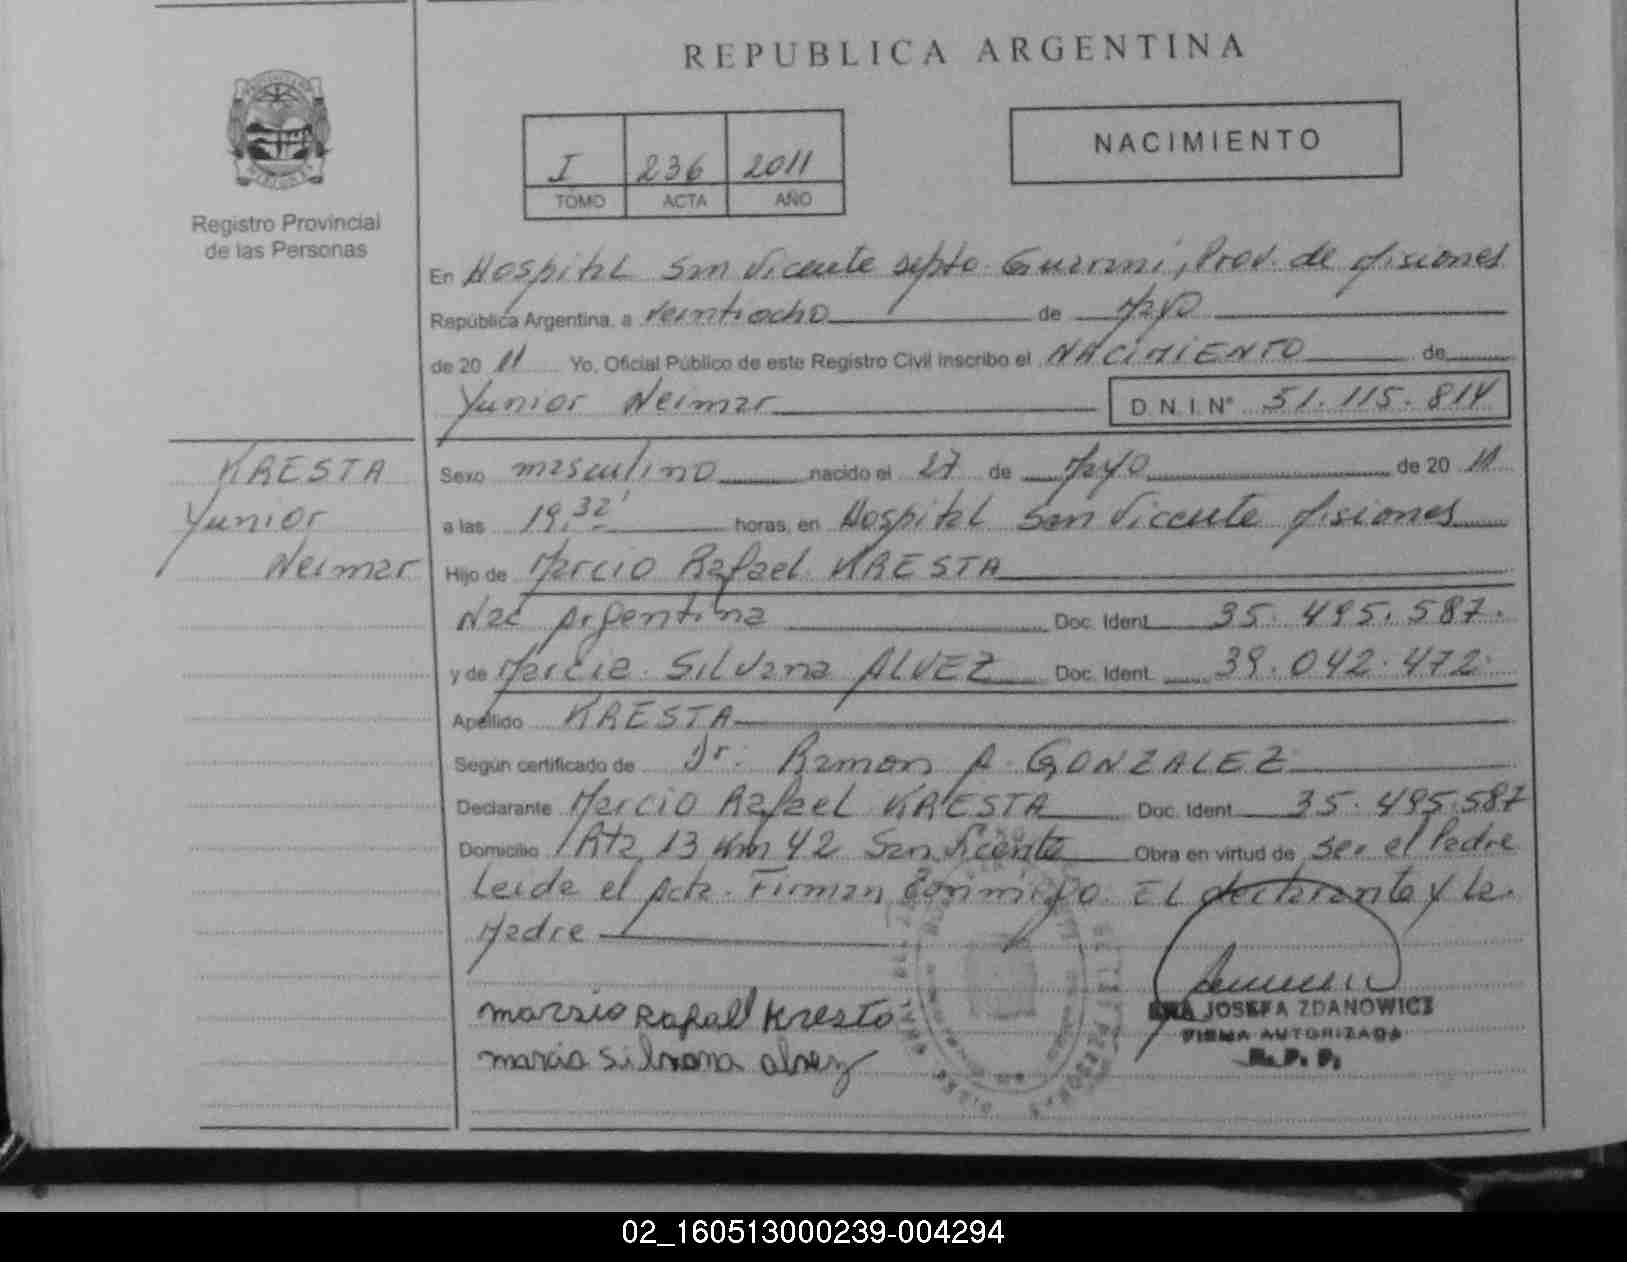 REPUBLICA ARGENTINA
I 236 2011
TOMO ACTA AÑO
NACIMIENTO
Registro Provincial
de las Personas
En Hospital San Vicente depto. Guarani, Prov. de Misiones
República Argentina, a veintiocho de Mayo
de 20 11 Yo, Oficial Público de este Registro Civil inscribo el NACIMIENTO de
Yunior Neimar D.N.I. N° 51.115.814
KRESTA
Yunior
Neimar
Sexo masculino nacido el 27 de Mayo de 20 11
a las 19,32' horas, en Hospital San Vicente Misiones
Hijo de Marcio Rafael KRESTA
Nac Argentina Doc. Ident. 35.495.587.
y de Marcia Silvana ALVEZ Doc. Ident. 39.042.472.
Apellido KRESTA
Según certificado de Dr. Ramon A. GONZALEZ
Declarante Marcio Rafael KRESTA Doc. Ident. 35.495.587
Domicilio Rta 13 Km 42 San Vicente Obra en virtud de ser el Padre
Leida el Acta. Firman conmigo El declarante y la
Madre
marsio Rafael Kresta
marcia Silvana alvez
JOSEFA ZDANOWICZ
FIRMA AUTORIZADA
R. P. P.
02_160513000239-004294